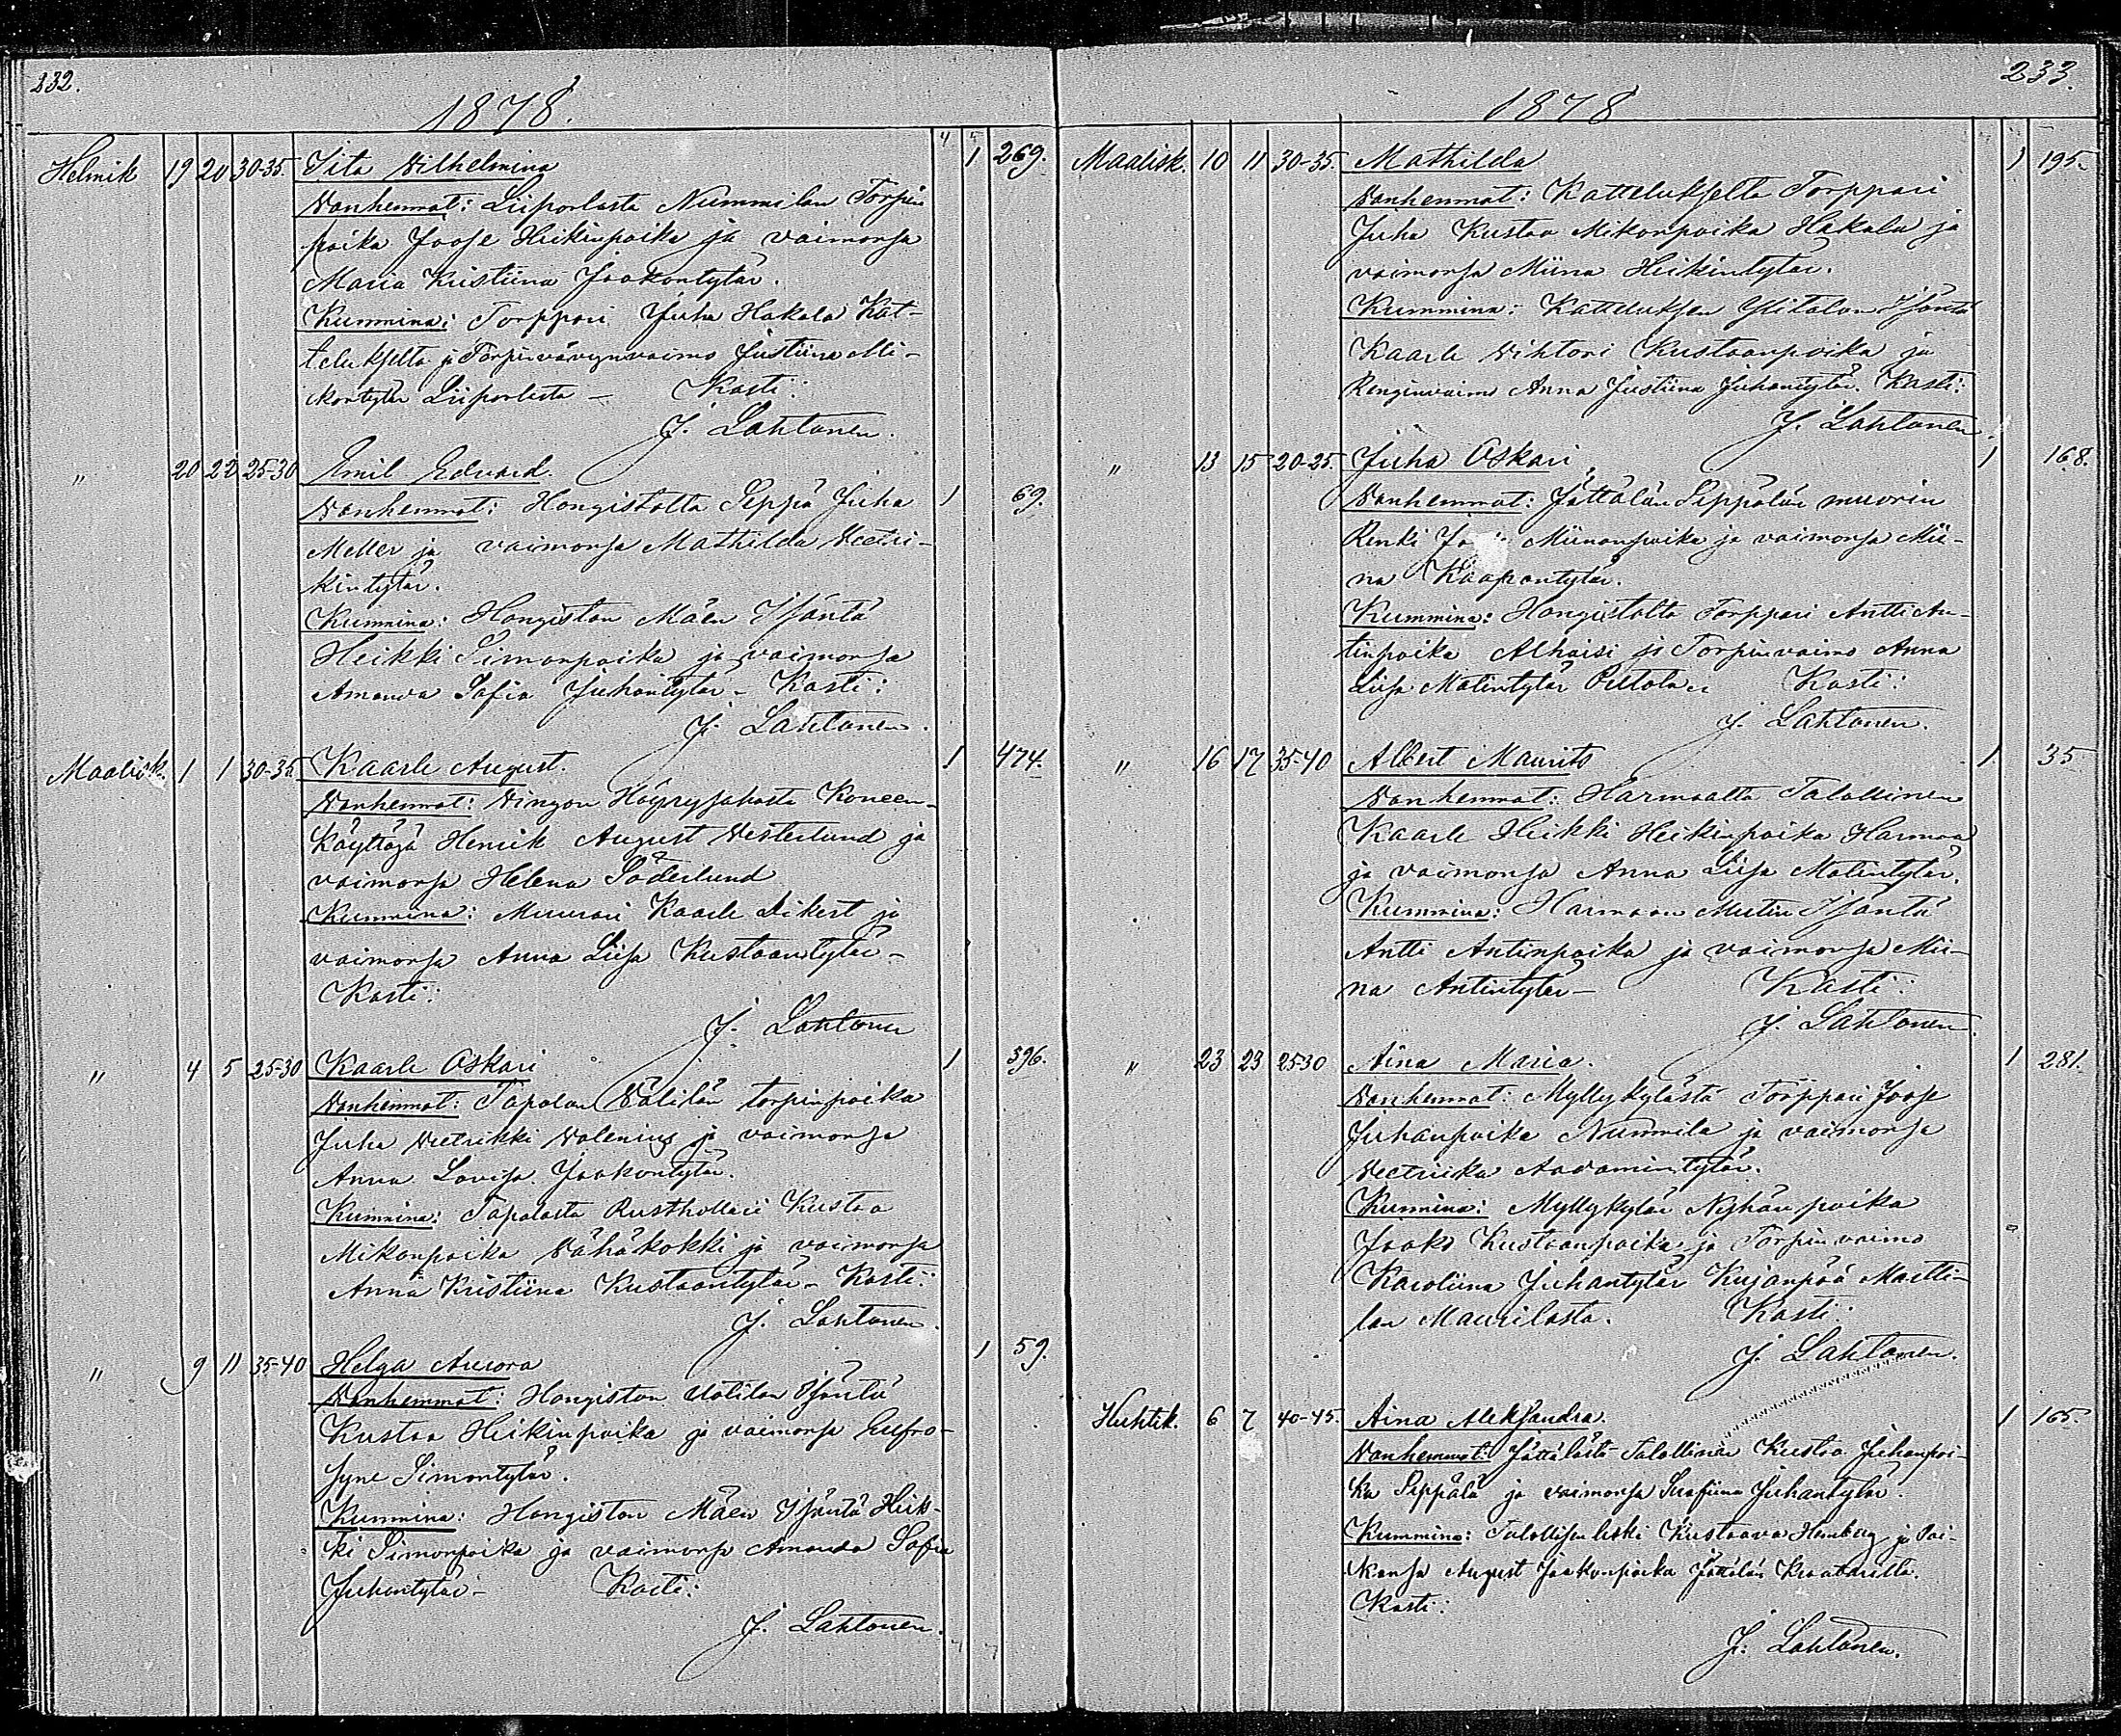 232.
1878.
4 5
Helmik 19 20 30-35. Iita Vilhelmina 1 269.
Vanhemmat: Liiporlasta Nummilan Torpin
poika Joose Heikinpoika ja vaimonsa
Maria Kristiina Jaakontytär.
Kummina: Torppari Juha Hakala Kat-
telukselta ja Torpinvävyn vaimo Justiina Mi-
kontytär Liiporlasta – Kasti:
J. Lahtonen.
" 20 22 25-30 Emil Edvard. 1 69.
Vanhemmat: Hongistolta Seppä Juha
Meller ja vaimonsa Mathilda Veetri-
kintytär.
Kummina: Hongiston Mäen Isäntä
Heikki Simonpoika ja vaimonsa
Amanda Sofia Juhontytär – Kasti:
J. Lahtonen.
Maalisk. 1 1 30-35. Kaarle August. 1 474.
Vanhemmat: Vingon Höyrysahasta Koneen-
Käyttäjä Henrik August Vesterlund ja
vaimonsa Helena Söderlund
Kummina: Muurari Kaarle Likert ja
vaimonsa Anna Liisa Kustaantytär –
Kasti:
J. Lahtonen
" 4 5 25-30 Kaarle Oskari 1 396.
Vanhemmat: Tapolan Välilän torpinpoika
Juha Veetrikki Valenius ja vaimonsa
Anna Lovisa Jaakontytär.
Kummina: Tapolasta Rusthollari Kustaa
Mikonpoika Vähäkokki ja vaimonsa
Anna Kristiina Kustaantytär – Kasti:
J. Lahtonen.
" 9 11 35-40 Helga Aurora 1 59.
Vanhemmat: Hongiston Uotilan Isäntä
Kustaa Heikinpoika ja vaimonsa Eufro-
syne Simontytär.
Kummina: Hongiston Mäen Isäntä Heik-
ki Simonpoika ja vaimonsa Amanda Sofia
Juhontytär – Kasti:
J. Lahtonen.
233.
1878
Maalisk. 10 11 30-35. Mathilda 1 195.
Vanhemmat: Kattelukselta Torppari
Juha Kustaa Mikonpoika Hakala ja
vaimonsa Miina Heikintytär.
Kummina: Katteluksen Ylitalon Isäntä
Kaarle Vihtori Kustaanpoika ja
Renginvaimo Anna Justiina Juhontytär. Kasti:
J. Lahtonen.
" 13 15 20-25. Juha Oskari 1 168.
Vanhemmat: Jättälän Seppälän muorin
Renki Miinanpoika ja vaimonsa Mii-
na Kaapontytär.
Kummina: Hongistolta Torppari Antti An-
tinpoika Alhaisi ja Torpinvaimo Anna
Liisa Matintytär Kasti:
J. Lahtonen.
" 16 17 35-40 Albert Maurits 1 35
Vanhemmat: Harmaalta Talollinen
Kaarle Heikki Heikinpoika Harmaa
ja vaimonsa Anna Liisa Matintytär.
Kummina: Harmaan Mutin Isäntä
Antti Antinpoika ja vaimonsa Mii-
na Antintytär – Kasti:
J. Lahtonen.
" 23 23 25-30 Aina Maria. 1 281.
Vanhemmat: Myllykylästä Torppari Joose
Juhanpoika Nummila ja vaimonsa
Veetriika Aadamintytär.
Kummina: Myllykylän Nyhän poika
Jaako Kustaanpoika ja Torpin vaimo
Karoliina Juhantytär Kujanpää Martti-
lan Maurilasta. Kasti:
J. Lahtonen.
Huhtik. 6 7 40-45. Aina Aleksandra. 1 165.
Vanhemmat: Jättälästä Talollinen Kustaa Juhanpoi-
ka Seppälä ja vaimonsa Serafiina Juhantytär.
Kummina: Talollisen leski Kustaava ja Poi-
kansa August Jaakonpoika Jättälän
Kasti:
J. Lahtonen.